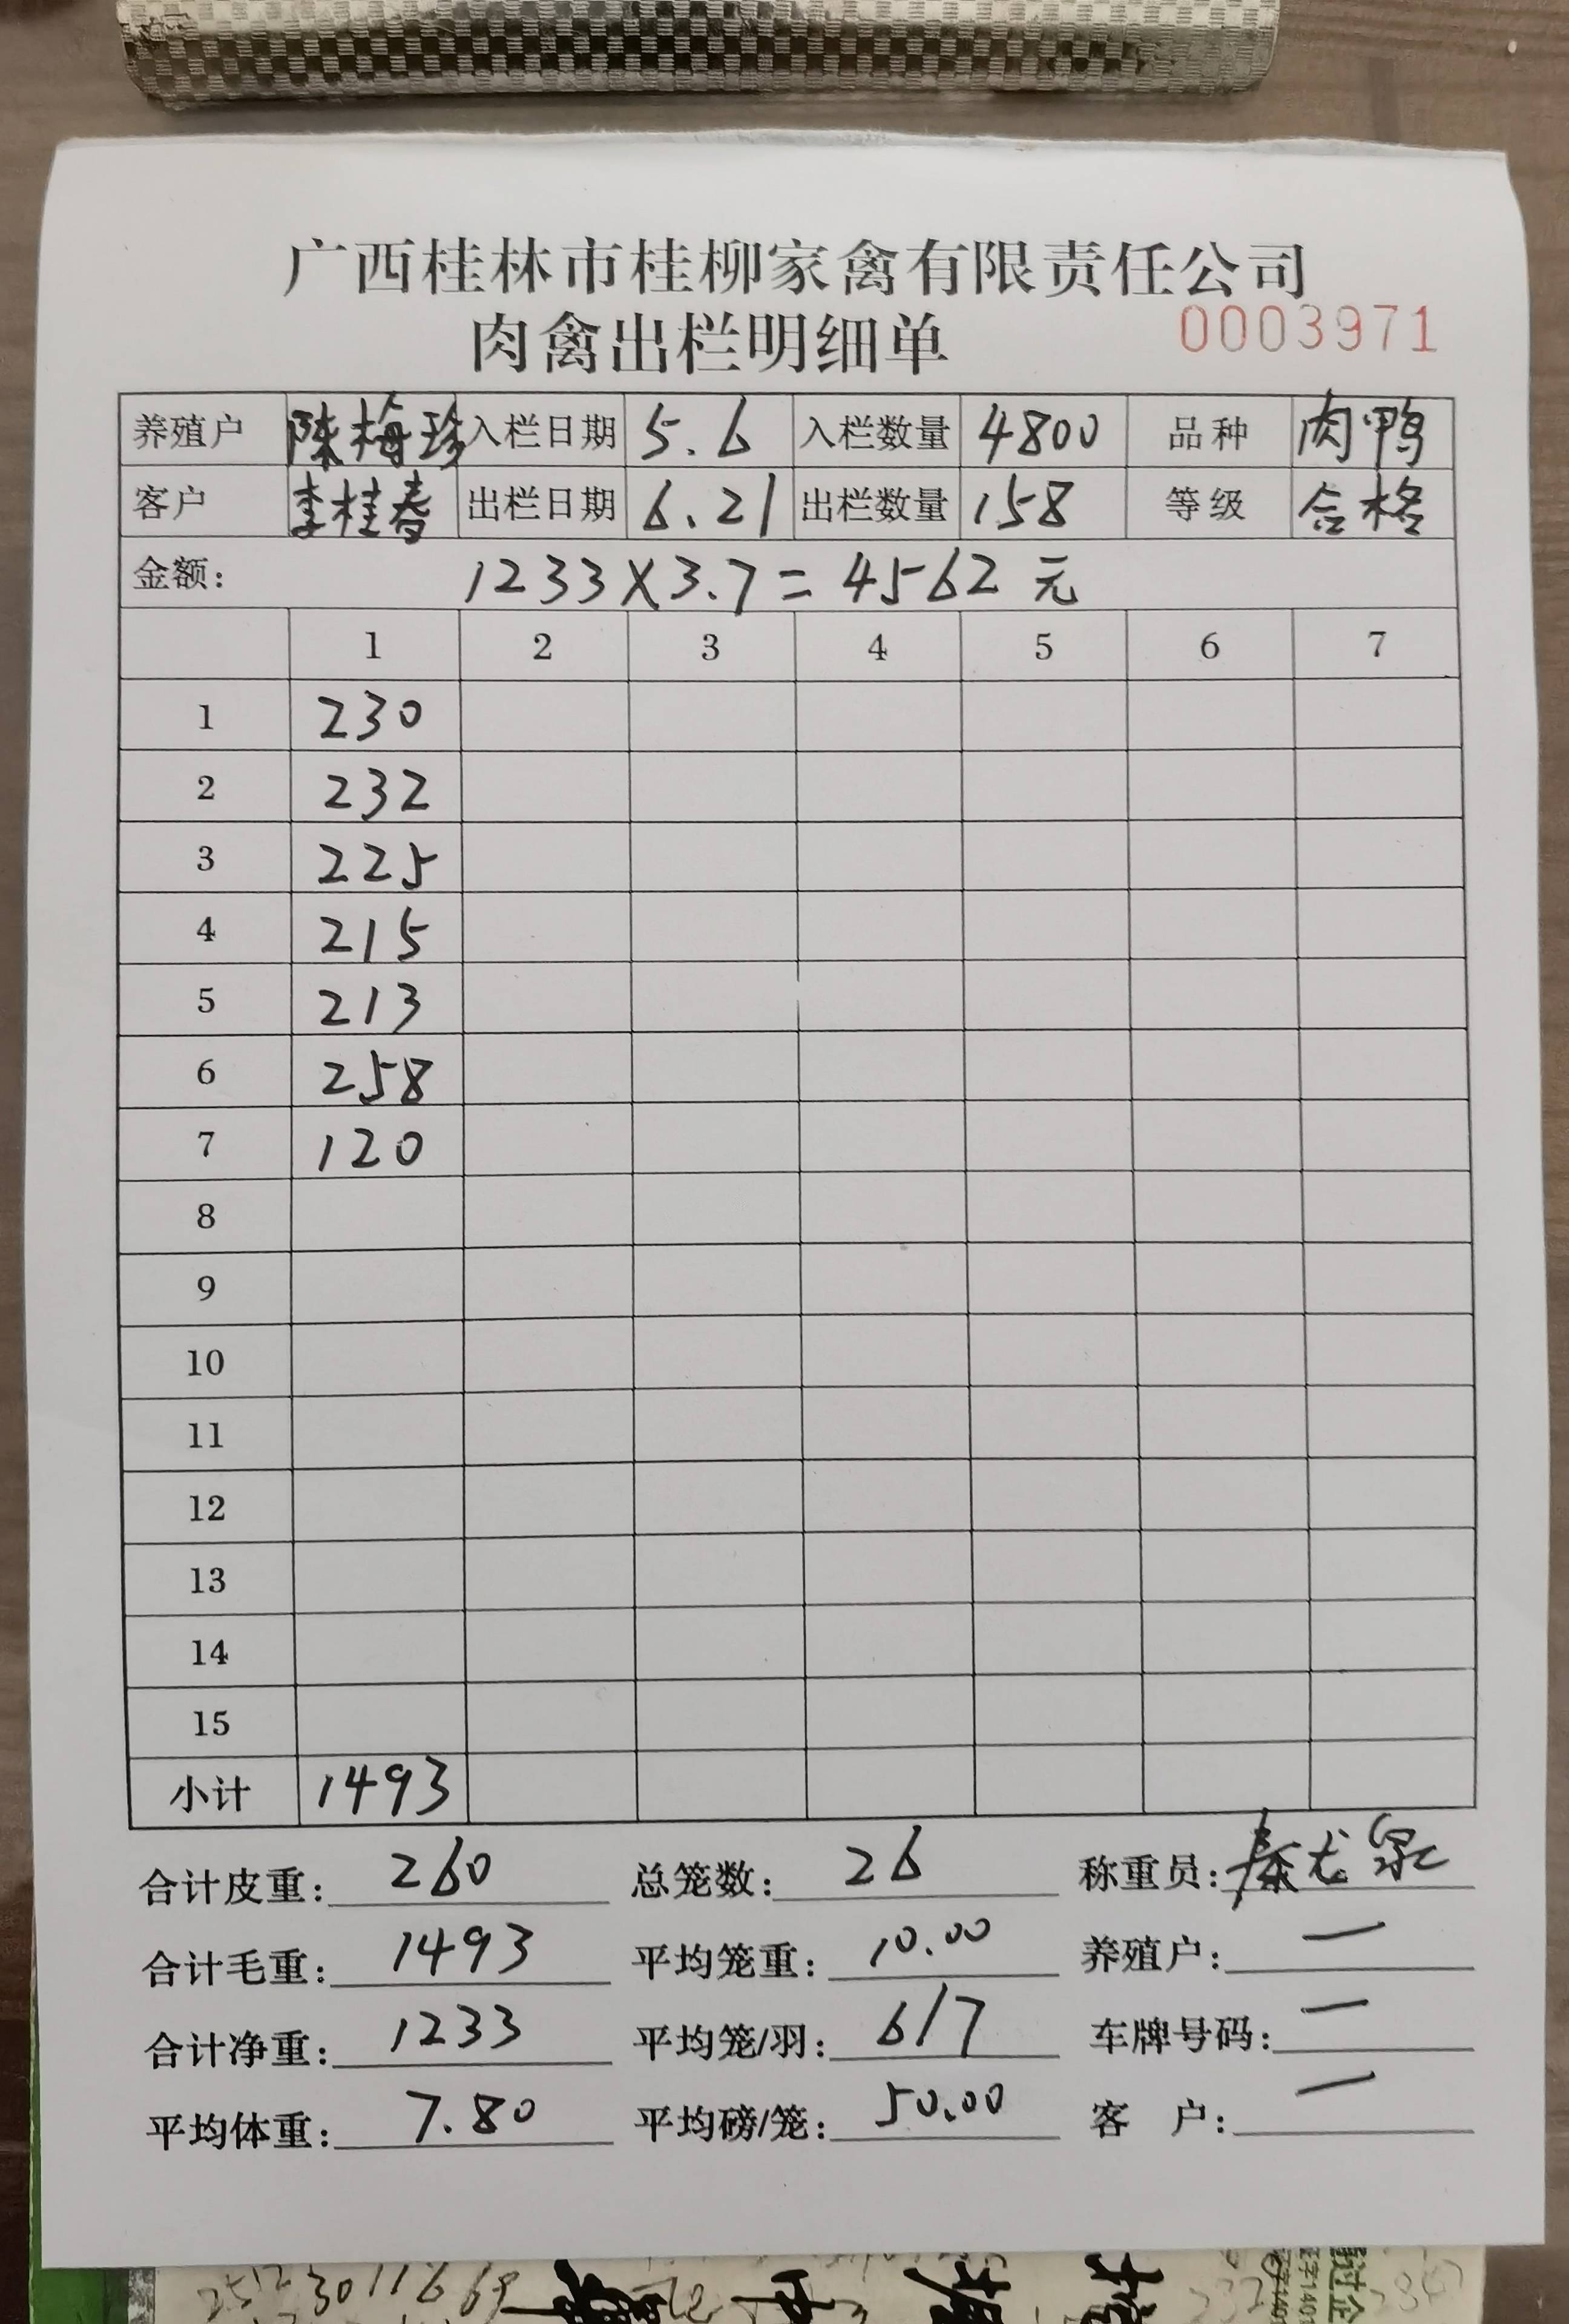 广西桂林市桂柳家禽有限责任公司
肉禽出栏明细单
0003971
养殖户 陈梅珍 入栏日期 5.6 入栏数量 4800 品种 肉鸭
客户 李桂春 出栏日期 6.21 出栏数量 158 等级 合格
金额: 1233X3.7=4562元
1 2 3 4 5 6 7
1 230
2 232
3 225
4 215
5 213
6 258
7 120
8
9
10
11
12
13
14
15
小计 1493
合计皮重: 260 总笼数: 26 称重员: 秦龙泉
合计毛重: 1493 平均笼重: 10.00 养殖户: —
合计净重: 1233 平均笼/羽: 6/7 车牌号码: —
平均体重: 7.80 平均磅/笼: 50.00 客户: —